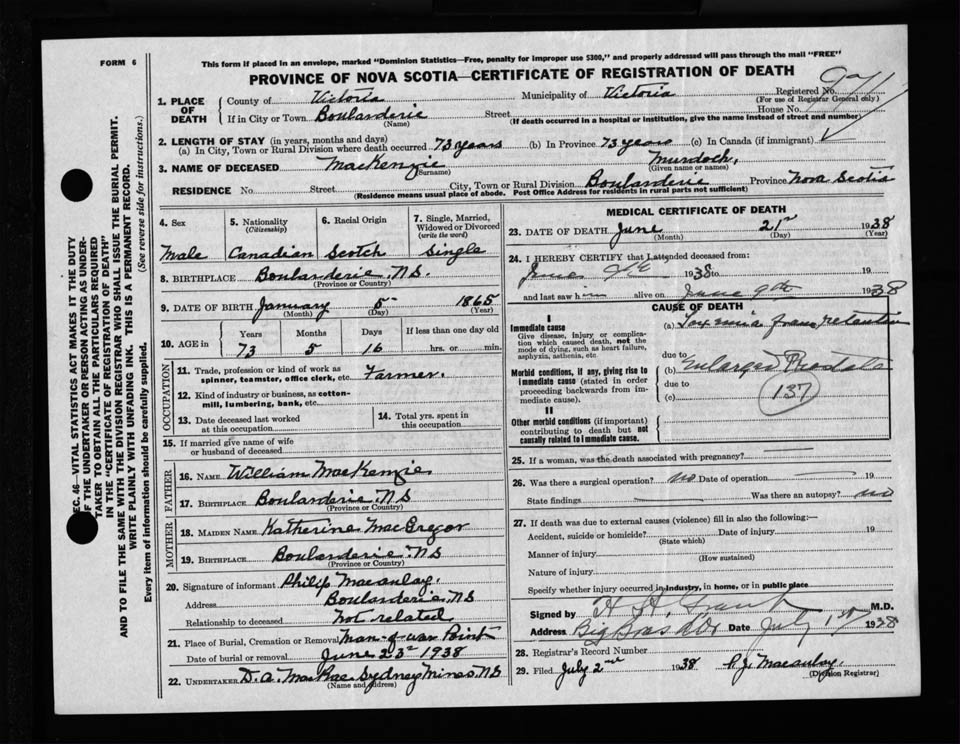 FORM 6
This form if placed in an envelope, marked "Dominion Statistics—Free, penalty for improper use $300," and properly addressed will pass through the mail "FREE"
PROVINCE OF NOVA SCOTIA—CERTIFICATE OF REGISTRATION OF DEATH
1. PLACE OF DEATH
County of Victoria Municipality of Victoria Registered No.
(For use of Registrar General only)
If in City or Town Boularderie Street House No.
(Name) (If death occurred in a hospital or institution, give the name instead of street and number)
2. LENGTH OF STAY (in years, months and days)
(a) In City, Town or Rural Division where death occurred 73 years (b) In Province 73 years (c) In Canada (if immigrant)
3. NAME OF DECEASED MacKenzie Murdoch,
(Surname) (Given name or names)
RESIDENCE No. Street City, Town or Rural Division Boularderie Province Nova Scotia
(Residence means usual place of abode. Post Office Address for residents in rural parts not sufficient)
4. Sex
Male
5. Nationality
(Citizenship)
Canadian
6. Racial Origin
Scotch
7. Single, Married, Widowed or Divorced
(write the word)
Single
8. BIRTHPLACE Boularderie N.S.
(Province or Country)
9. DATE OF BIRTH January 5 1865
(Month) (Day) (Year)
10. AGE in
Years Months Days If less than one day old
73 5 16 hrs. or min.
OCCUPATION
11. Trade, profession or kind of work as spinner, teamster, office clerk, etc. Farmer.
12. Kind of industry or business, as cotton-mill, lumbering, bank, etc.
13. Date deceased last worked at this occupation
14. Total yrs. spent in this occupation
15. If married give name of wife or husband of deceased
FATHER
16. NAME William MacKenzie
17. BIRTHPLACE Boularderie N.S
(Province or Country)
MOTHER
18. MAIDEN NAME Katherine MacGregor
19. BIRTHPLACE Boularderie N S
(Province or Country)
20. Signature of informant Philip Macaulay.
Address Boularderie N S
Relationship to deceased Not related
21. Place of Burial, Cremation or Removal Man-of-war Point
Date of burial or removal June 23rd 1938
22. UNDERTAKER D. A. MacRae Sydney Mines N S
(Name and Address)
MEDICAL CERTIFICATE OF DEATH
23. DATE OF DEATH June 21st 1938
(Month) (Day) (Year)
24. I HEREBY CERTIFY that I attended deceased from:
June 1938 to 19
and last saw him alive on June 9th 1938
CAUSE OF DEATH
I
Immediate cause
Give disease, injury or complication which caused death, not the mode of dying, such as heart failure, asphyxia, asthenia, etc
(a) Toxemia from retention
due to
Morbid conditions, if any, giving rise to immediate cause (stated in order proceeding backwards from immediate cause).
(b) Enlarged Prostate
due to
(c)
137
II
Other morbid conditions (if important) contributing to death but not causally related to immediate cause.
25. If a woman, was the death associated with pregnancy?
26. Was there a surgical operation? no Date of operation 19
State findings Was there an autopsy? no
27. If death was due to external causes (violence) fill in also the following:—
Accident, suicide or homicide? Date of injury 19
(State which)
Manner of injury
(How sustained)
Nature of injury
Specify whether injury occurred in industry, in home, or in public place
Signed by H H Grant M.D.
Address Big Bras d'Or Date July 1st 1938
28. Registrar's Record Number
29. Filed July 2nd 1938 P. J. Macaulay.
(Division Registrar)
SEC. 46—VITAL STATISTICS ACT MAKES IT THE DUTY
OF THE UNDERTAKER OR PERSON ACTING AS UNDER-
TAKER TO OBTAIN ALL THE PARTICULARS REQUIRED
IN THE "CERTIFICATE OF REGISTRATION OF DEATH"
AND TO FILE THE SAME WITH THE DIVISION REGISTRAR WHO SHALL ISSUE THE BURIAL PERMIT.
WRITE PLAINLY WITH UNFADING INK. THIS IS A PERMANENT RECORD.
Every item of information should be carefully supplied. (See reverse side for instructions.)